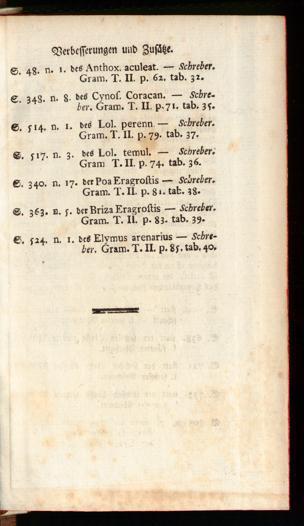 Verbesserungen und Zusätze.
S. 48. n. 1. des Anthox. aculeat. — Schreber.
Gram. T. II. p. 62. tab. 32.
S. 348. n. 8. des Cynos. Coracan. — Schre-
ber. Gram. T. II. p. 71. tab. 35.
S. 514. n. 1. des Lol. perenn — Schreber.
Gram. T. II. p. 79. tab. 37.
S. 517. n. 3. des Lol. temul. — Schreber.
Gram T. II. p. 74. tab. 36.
S. 340. n. 17. der Poa Eragrostis — Schreber.
Gram. T. II. p. 81. tab. 38.
S. 363. n. 5. der Briza Eragrostis — Schreber.
Gram. T. II. p. 83. tab. 39.
S. 524. n. 1. des Elymus arenarius — Schre-
ber. Gram. T. II. p. 85. tab. 40.